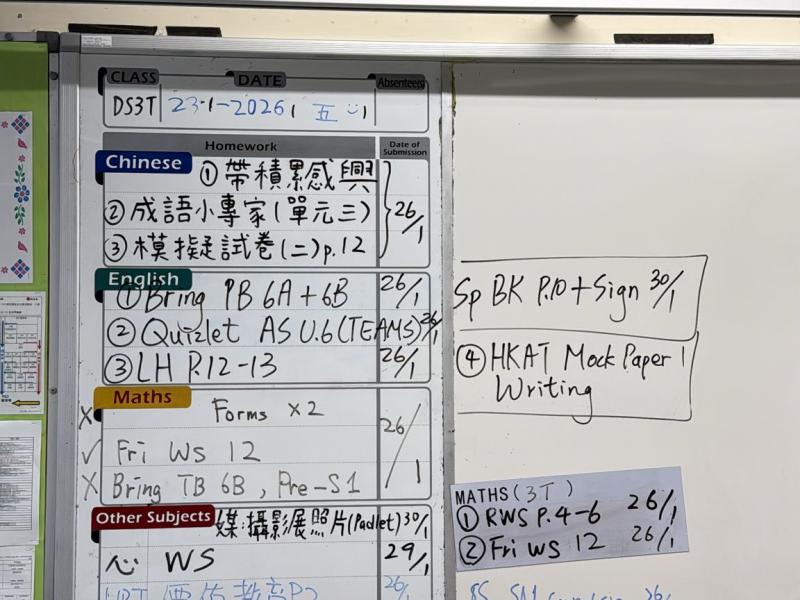 CLASS DATE Absentees
DS3T 23-1-2026, 五
Homework Date of Submission
Chinese ① 帶積累感興
② 成語小專家(單元三) 26/1
③ 模擬試卷(二)p.12
English
① Bring PB 6A + 6B 26/1
② Quizlet AS U.6 (TEAMS) 26/1
③ LH P.12-13 26/1
Maths
X Forms x2 26/1
✓ Fri WS 12
X Bring TB 6B, Pre-S1
Other Subjects 媒:攝影展照片(Padlet) 30/1
心 WS 29/1
26/1
Sp BK P.10 + Sign 30/1
④ HKAT Mock Paper 1
Writing
MATHS (3T)
① RWS P.4-6 26/1
② Fri WS 12 26/1